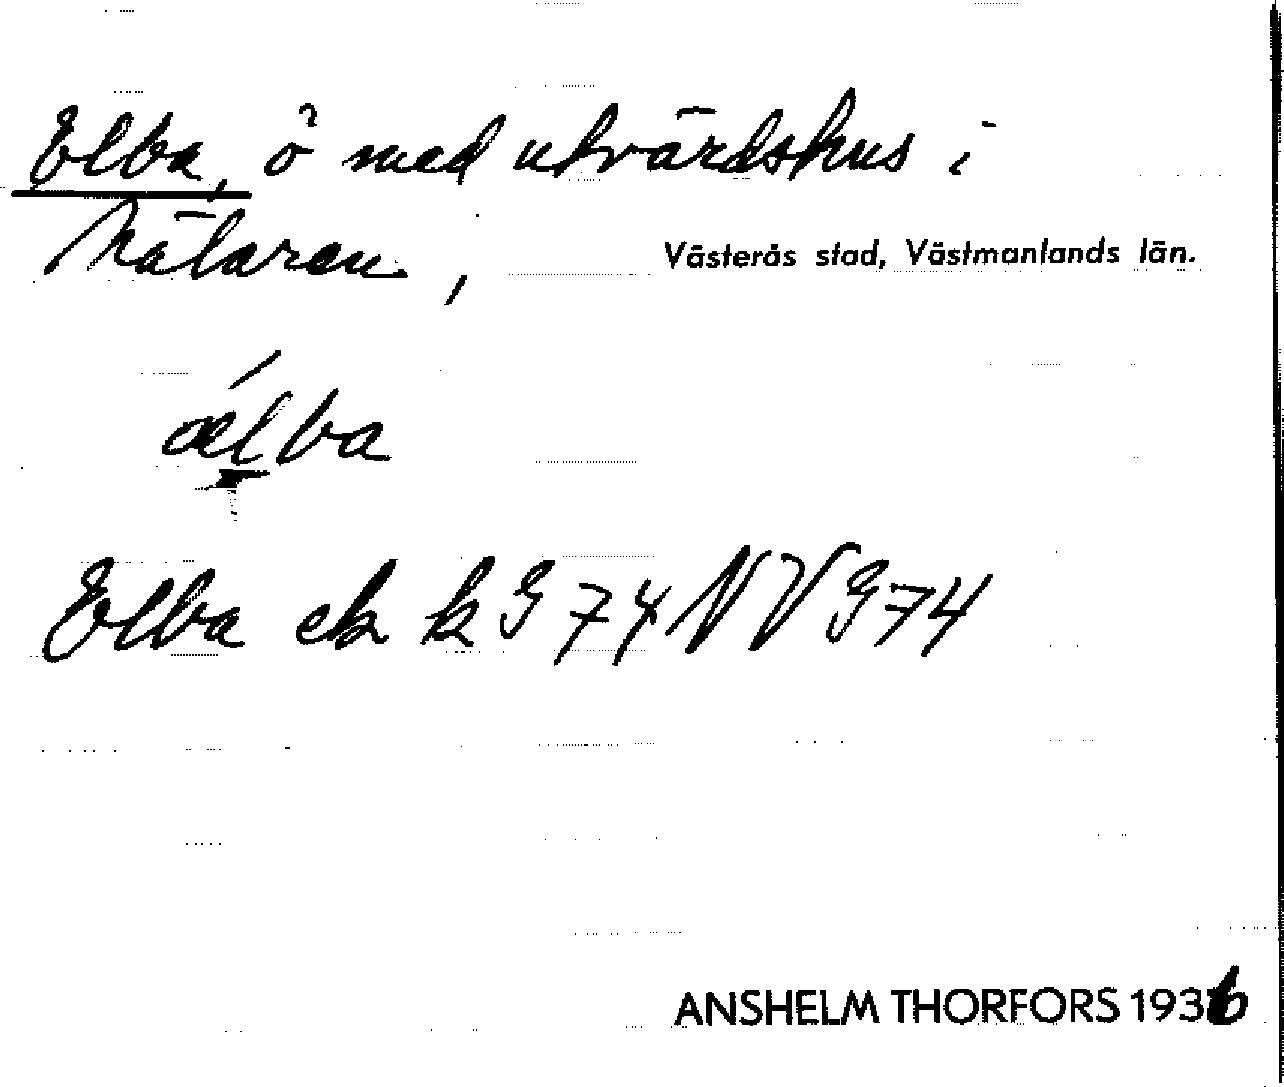 Elba, ö med utvärdshus i
Mälaren, Västerås stad, Västmanlands län.
ælba
Elba ek k G 74 NV G74
ANSHELM THORFORS 1936